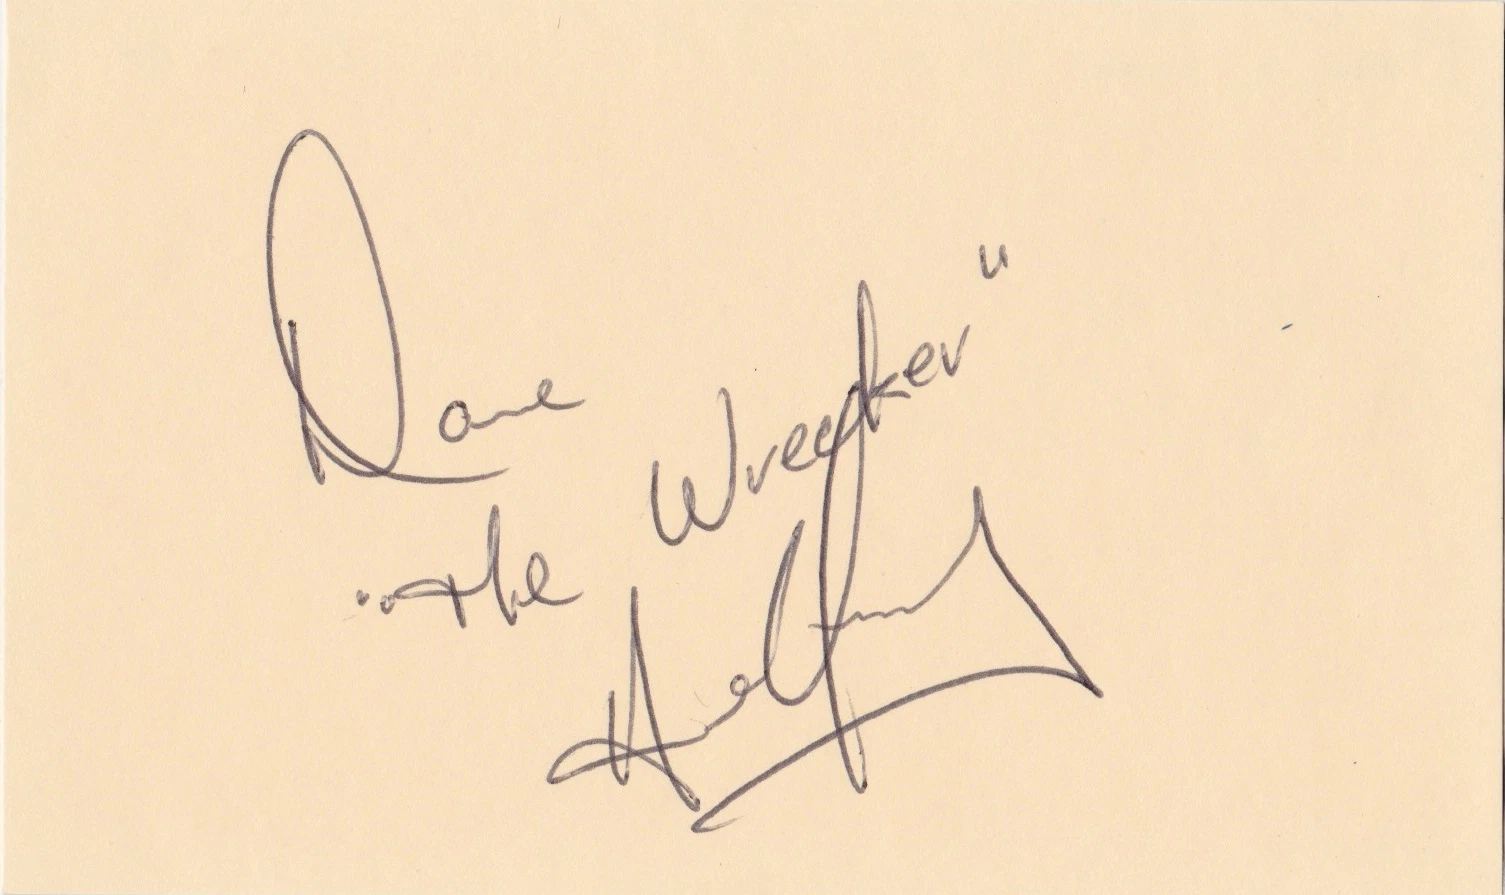 Dave
"The Wrecker"